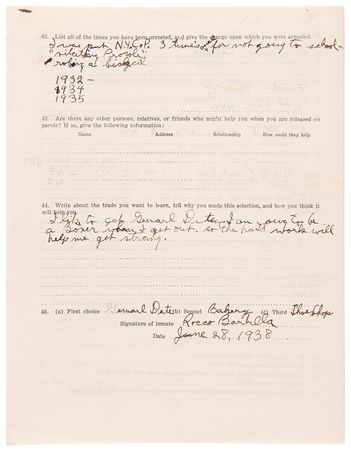 42. List all of the times you have been arrested, and give the charge upon which you were arrested.
I was put N.Y.C.P. 3 times for not going to school -
robing a bicycil
1932 -
1934
1935
43. Are there any other persons, relatives, or friends who might help you when you are released on
parole? If so, give the following information:
Name Address Relationship How could they help
44. Write about the trade you want to learn, tell why you made this selection, and how you think it
will help you.
I like to get Genarl Dutey. I am going to be
a Boxer when I get out. so the hard work will
help me get strong.
45. (a) First choice Genarl Dute (b) Second Bakery (c) Third Shoe Shop
Signature of inmate Rocco Barbella
Date June 28, 1938